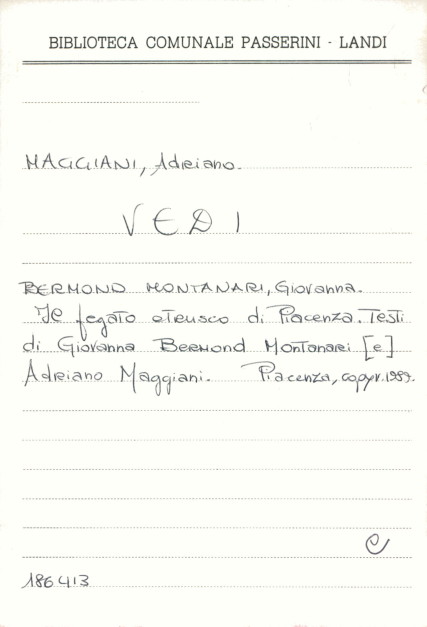 BIBLIOTECA COMUNALE PASSERINI - LANDI
MAGGIANI, Adriano.
VEDI
BERMOND MONTANARI, Giovanna.
Il fegato etrusco di Piacenza. Testi
di Giovanna Bermond Montanari [e]
Adriano Maggiani. Piacenza, copyr. 1989.
C
186413